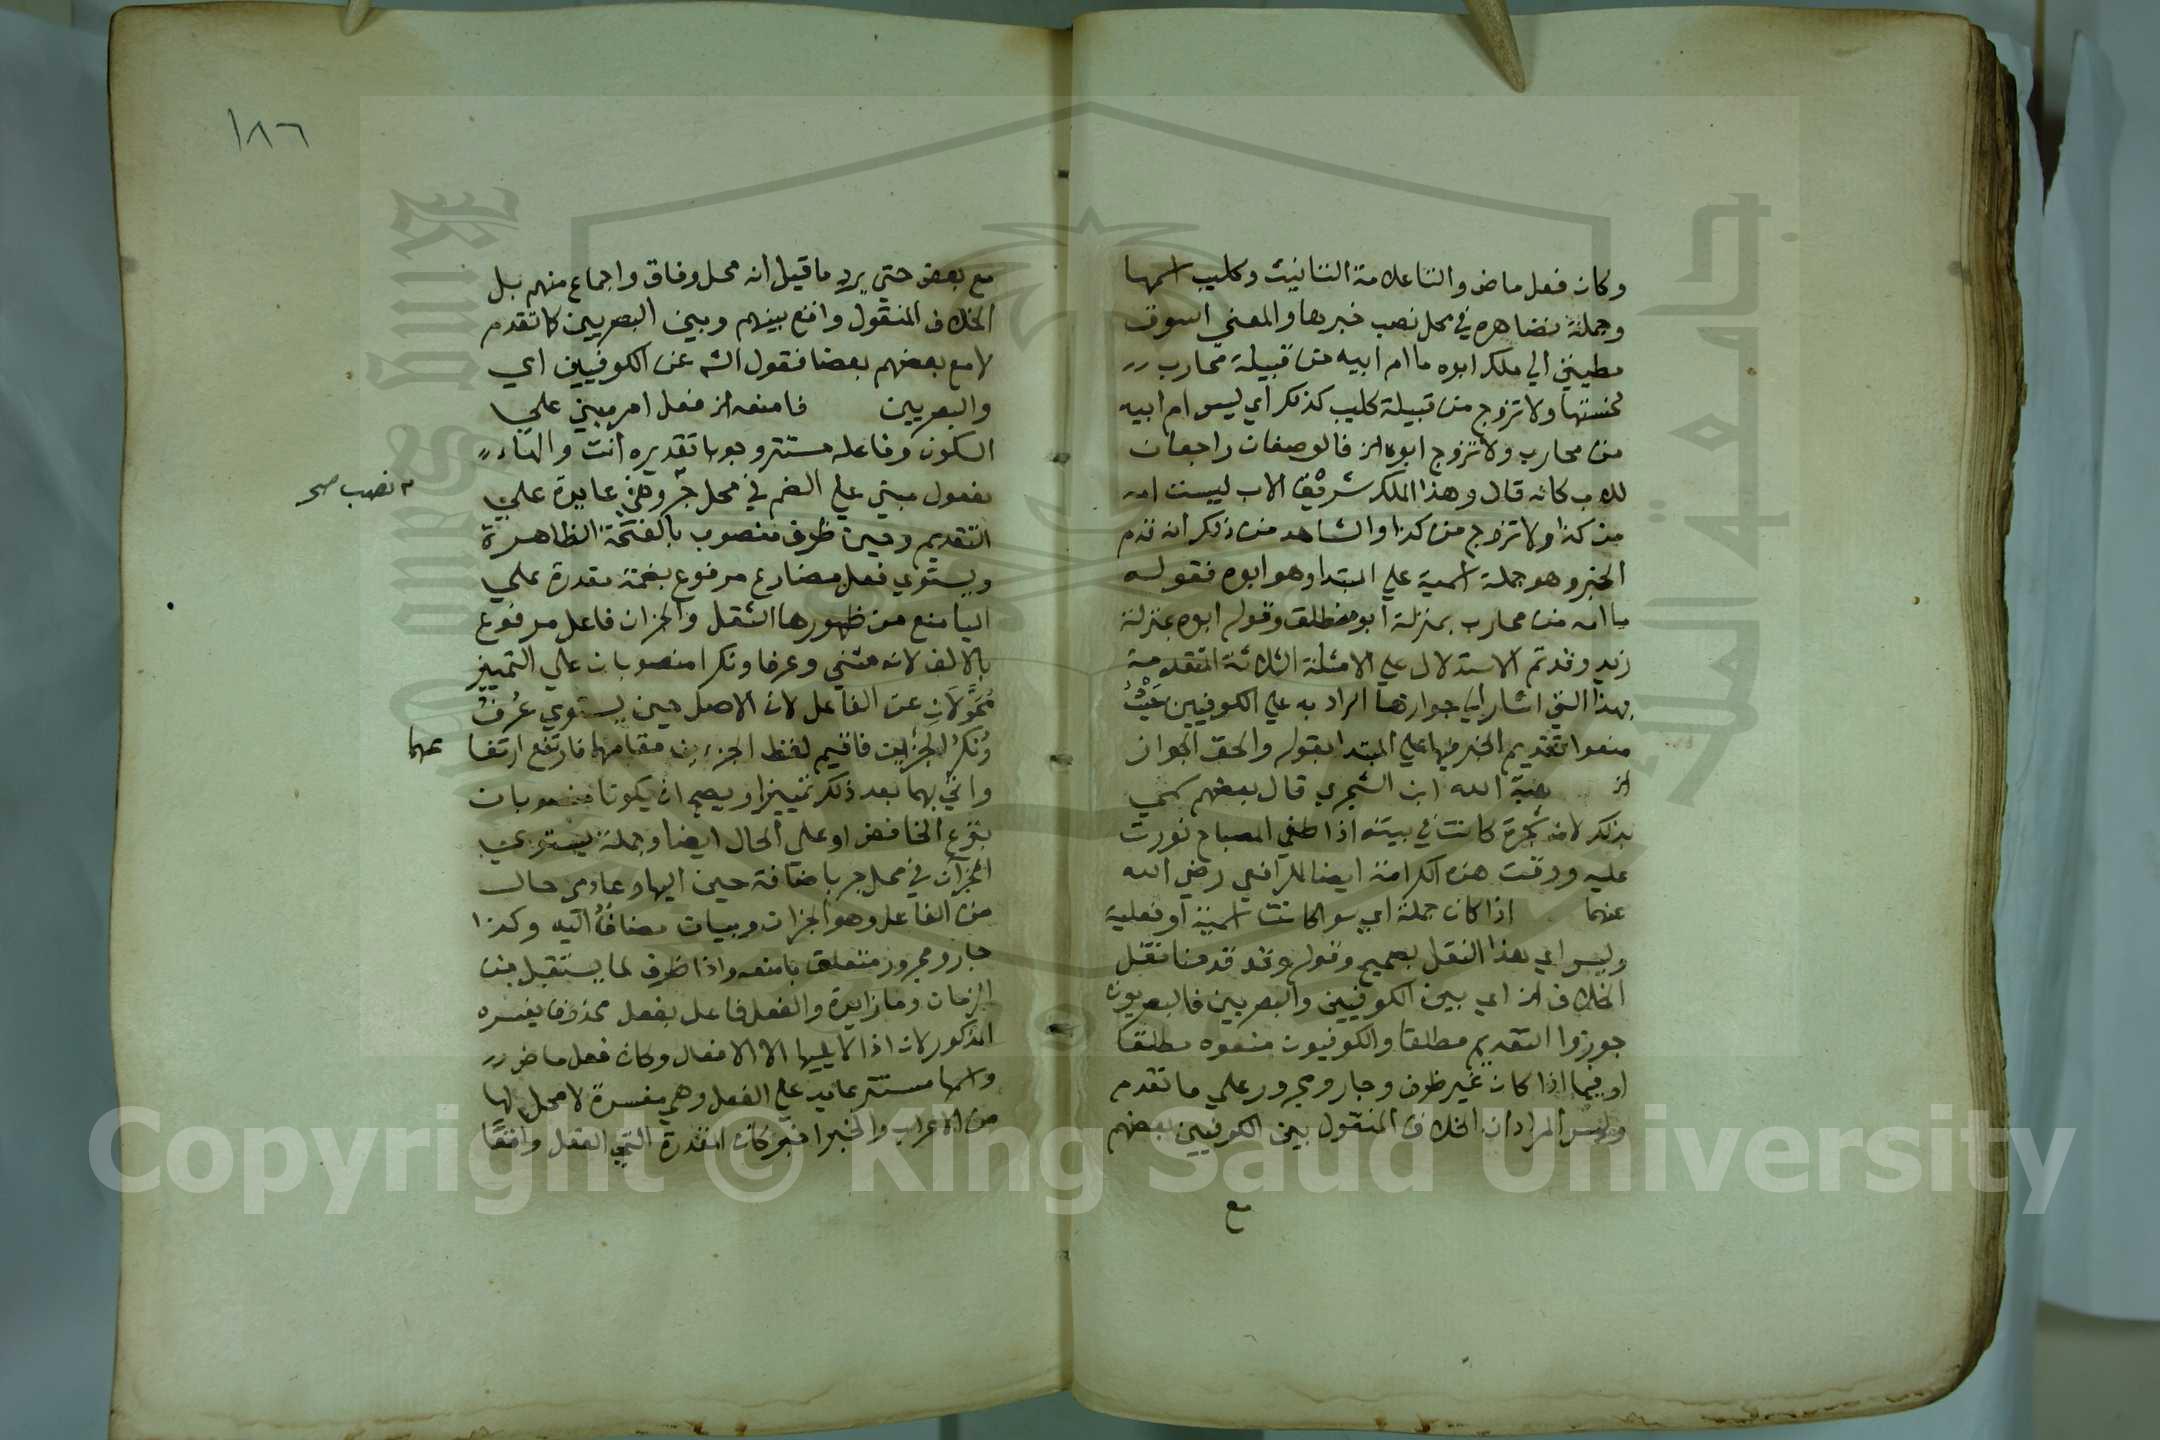 وكان فعل ماض والتا علامة التانيث وكليب اسمها
وجملة تضاهره في محل نصب خبرها والمعني اسوق
مطيتي الي ملك ابوه ما ام ابيه من قبيلة محارب
لخستها ولا تزوج من قبيلة كليب كذلك اي ليس ام ابيه
من محارب ولا تزوج ابوه الخ فالوصفان راجعان
للاب كانه قال وهذا الملك شريف الاب ليست امه
من كذا ولا تزوج من كذا والشاهد من ذلك انه قدم
الخبر وهو جملة اسمية علي المبتدا وهو ابوه فقوله
ما امه من محارب بمنزلة ابو منطلق وقوله ابوه بمنزلة
زيد وقد تم الاستدلال علي الامثلة الثلاثة المتقدمة
بهذا التي اشار الي جوازها الراد به علي الكوفيين حَيْثُ
منعوا تقديم الخبر فيها علي المبتدا بقوله والحق الجواز
الخ هبة الله ابن الشجري قال بعضهم سمي
بذلك لانه شجرة كانت في بيته اذا طفي المصباح نورت
عليه ووقت هذه الكرامة ايضا للرافعي رضي الله
عنهما اذا كان جملة اي سوا كانت اسمية او فعلية
وليس اي هذا النقل بصحيح وقوله وقد قدمنا نقل
الخلاف الخ اي بين الكوفيين والبصريين فالبصريون
جوزوا التقديم مطلقا والكوفيون منعوه مطلقا
او فيما اذا كان غير ظرف وجار ومجرور علي ما تقدم
وليس المراد ان الخلاف المنقول بين الكوفيين بعضهم
مع
١٨٦
مع بعض حتي يرد ما قيل انه محل وفاق واجماع منهم بل
الخلاف المنقول واقع بينهم وبين البصريين كما تقدم
لا مع بعضهم بعضا فقول الش عن الكوفيين اي
والبصريين فامنعه الخ فعل امر مبني علي
السكون وفاعله مستتر وجوبا تقديره انت والهاء
مفعول مبني علي الضم في محل جر وهي عايدة علي
نصب صح
التقديم وحين ظرف منصوب بالفتحة الظاهرة
ويستوي فعل مضارع مرفوع بضمة مقدرة علي
اليا منع من ظهورها الثقل والجزان فاعل مرفوع
بالالف لانه مثني وعرفا ونكرا منصوبان علي التمييز
مُحَوَّلَانِ عن الفاعل لان الاصل حين يستوي عُرْفُ
ونُكْرُ الجزأين فاقيم لفظ الجزءين مقامهما فارتفع ارتفا
عهما
واتي بهما بعد ذلك تمييزا ويصح ان يكونا منصوبان
بنزع الخافض او علي الحال ايضا وجملة يستوي
الجزآن في محل جر باضافة حين اليها وعادمي حال
من الفاعل وهو الجزان وبيان مضافٌ اليه وكذا
جار ومجرور متعلق بامنعه واذا ظرف لما يستقبل من
الزمان وما زايدة والفعل فاعل بفعل محذوف يفسره
المذكور لان اذا لا يليها الا الافعال وكان فعل ماض
واسمها مستتر عايد علي الفعل وهي مفسرة لا محل لها
من الاعراب والخبرا خبر كان المقدرة التي الفعل واقعًا
Copyright © King Saud University